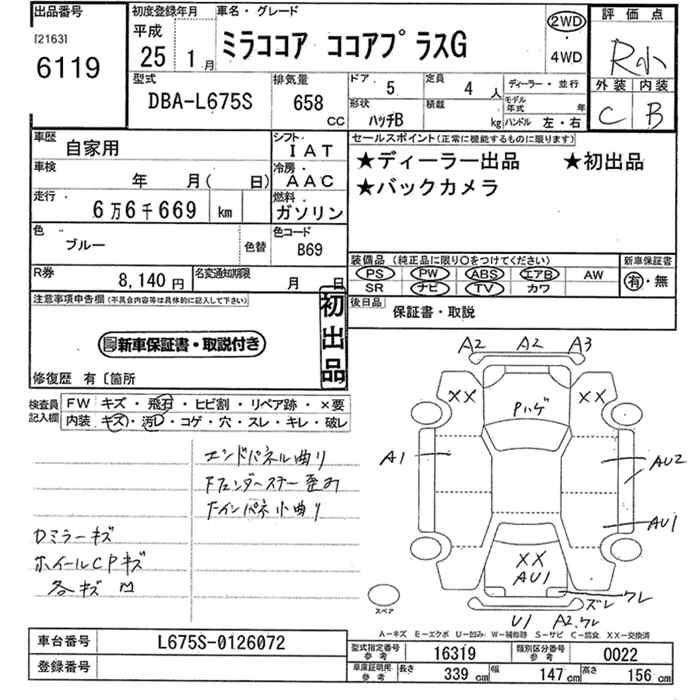 出品番号
[2163]
6119
初度登録年月
平成
25 1月
車名・グレード
ミラココア ココアプラスG
2WD
・
4WD
評価点
R小
外装 内装
C B
型式
DBA-L675S
排気量
658
cc
ドア 5
定員 4人
ディーラー・並行
形状 ハッチB
積載 kg
モデル年式 年
ハンドル 左・右
車歴 自家用
シフト IAT
車検 年 月( 日)
冷房 AAC
走行 6万6千669 km
燃料 ガソリン
色 ブルー 色替
色コード B69
R券 8,140円
名変通知期限 月 日
セールスポイント(正常に機能するものに限ります)
★ディーラー出品 ★初出品
★バックカメラ
装備品(純正品に限り〇をつけてください)
新車保証書
PS PW ABS エアB AW
SR ナビ TV カワ
有・無
後日品 保証書・取説
注意事項申告欄(不具合内容等は具体的に記入して下さい)
初出品
新車保証書・取説付き
修復歴 有〔箇所
検査員記入欄
FW キズ・飛石・ヒビ割・リペア跡・×要
内装 キズ・汚レ・コゲ・穴・スレ・キレ・破レ
エンドパネル曲り
Fフェンダーステー歪み
Fインパネ小曲り
Dミラーキズ
ホイールCPキズ
各キズ凹
A2 A2 A3
XX XX
Pハゲ
A1
AU2
AU1
XX
AU1
クレ
ズレ
U1 A2.クレ
スペア
A−キズ E−エクボ U−凹み W−補修跡 S−サビ C−腐食 XX−交換済
車台番号 L675S-0126072
登録番号
型式指定番号 参考 16319
類別区分番号 参考 0022
車庫証明用 参考 長さ 339cm 幅 147cm 高さ 156cm